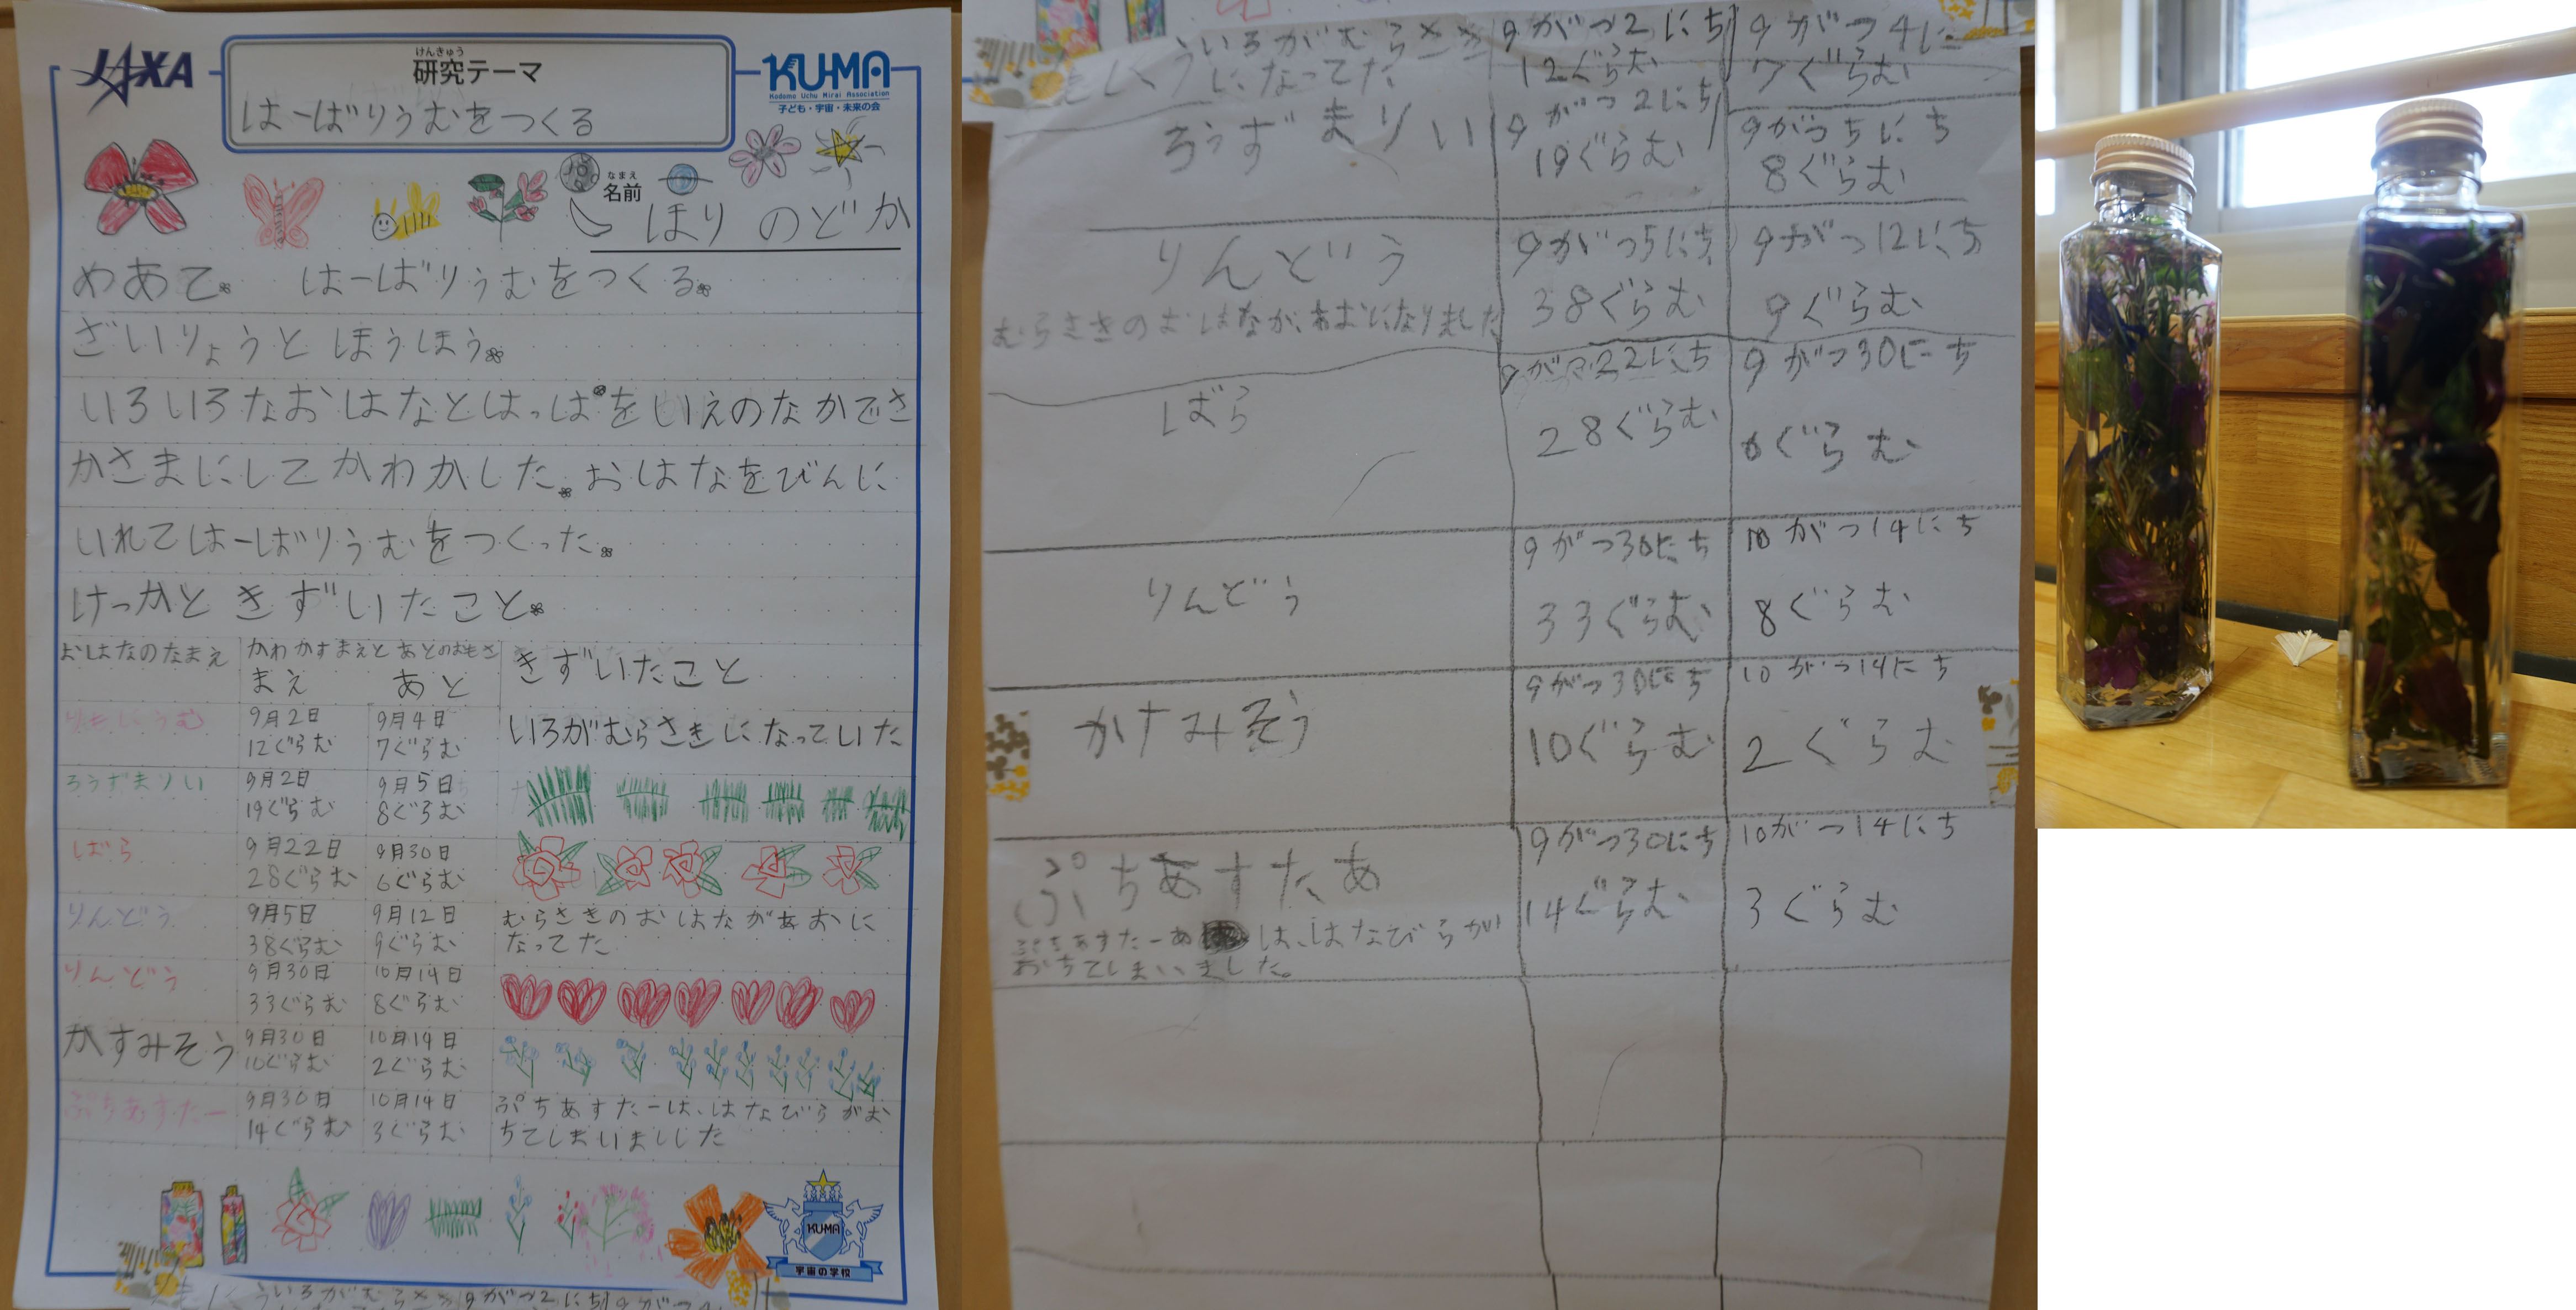 JAXA
けんきゅう
研究テーマ
はーばりうむをつくる
KU-MA
Kodomo Uchu Mirai Association
子ども・宇宙・未来の会
なまえ
名前
ほり のどか
めあて。 はーばりうむをつくる。
ざいりょうと ほうほう。
いろいろなおはなとはっぱをいえのなかでさ
かさまにしてかわかした。おはなをびんに
いれてはーばりうむをつくった。
けっかと きずいたこと。
おはなのなまえ かわかすまえとあとのおもさ きずいたこと
まえ あと
9月2日 9月4日 いろがむらさきになっていた
12ぐらむ 7ぐらむ
ろうずまりい 9月2日 9月5日
19ぐらむ 8ぐらむ
ばら 9月22日 9月30日
28ぐらむ 6ぐらむ
りんどう 9月5日 9月12日 むらさきのおはながあおに
38ぐらむ 9ぐらむ なってた
りんどう 9月30日 10月14日
33ぐらむ 8ぐらむ
かすみそう 9月30日 10月14日
10ぐらむ 2ぐらむ
ぷちあすたー 9月30日 10月14日 ぷちあすたーは、はなびらがお
14ぐらむ 3ぐらむ ちてしまいましした
KU-MA
宇宙の学校
いろがむらさき 9がつ2にち 9がつ4に
になってた 12ぐらむ 7ぐらむ
ろうずまりい 9がつ2にち 9がつ5にち
19ぐらむ 8ぐらむ
りんどう 9がつ5にち 9がつ12にち
むらさきのおはなが、あおになりました 38ぐらむ 9ぐらむ
ばら 9がつ22にち 9がつ30にち
28ぐらむ 6ぐらむ
りんどう 9がつ30にち 10がつ14にち
33ぐらむ 8ぐらむ
かすみそう 9がつ30にち 10がつ14にち
10ぐらむ 2ぐらむ
ぷちあすたあ 9がつ30にち 10がつ14にち
14ぐらむ 3ぐらむ
ぷちあすたーあ は、はなびらが
おちてしまいました。